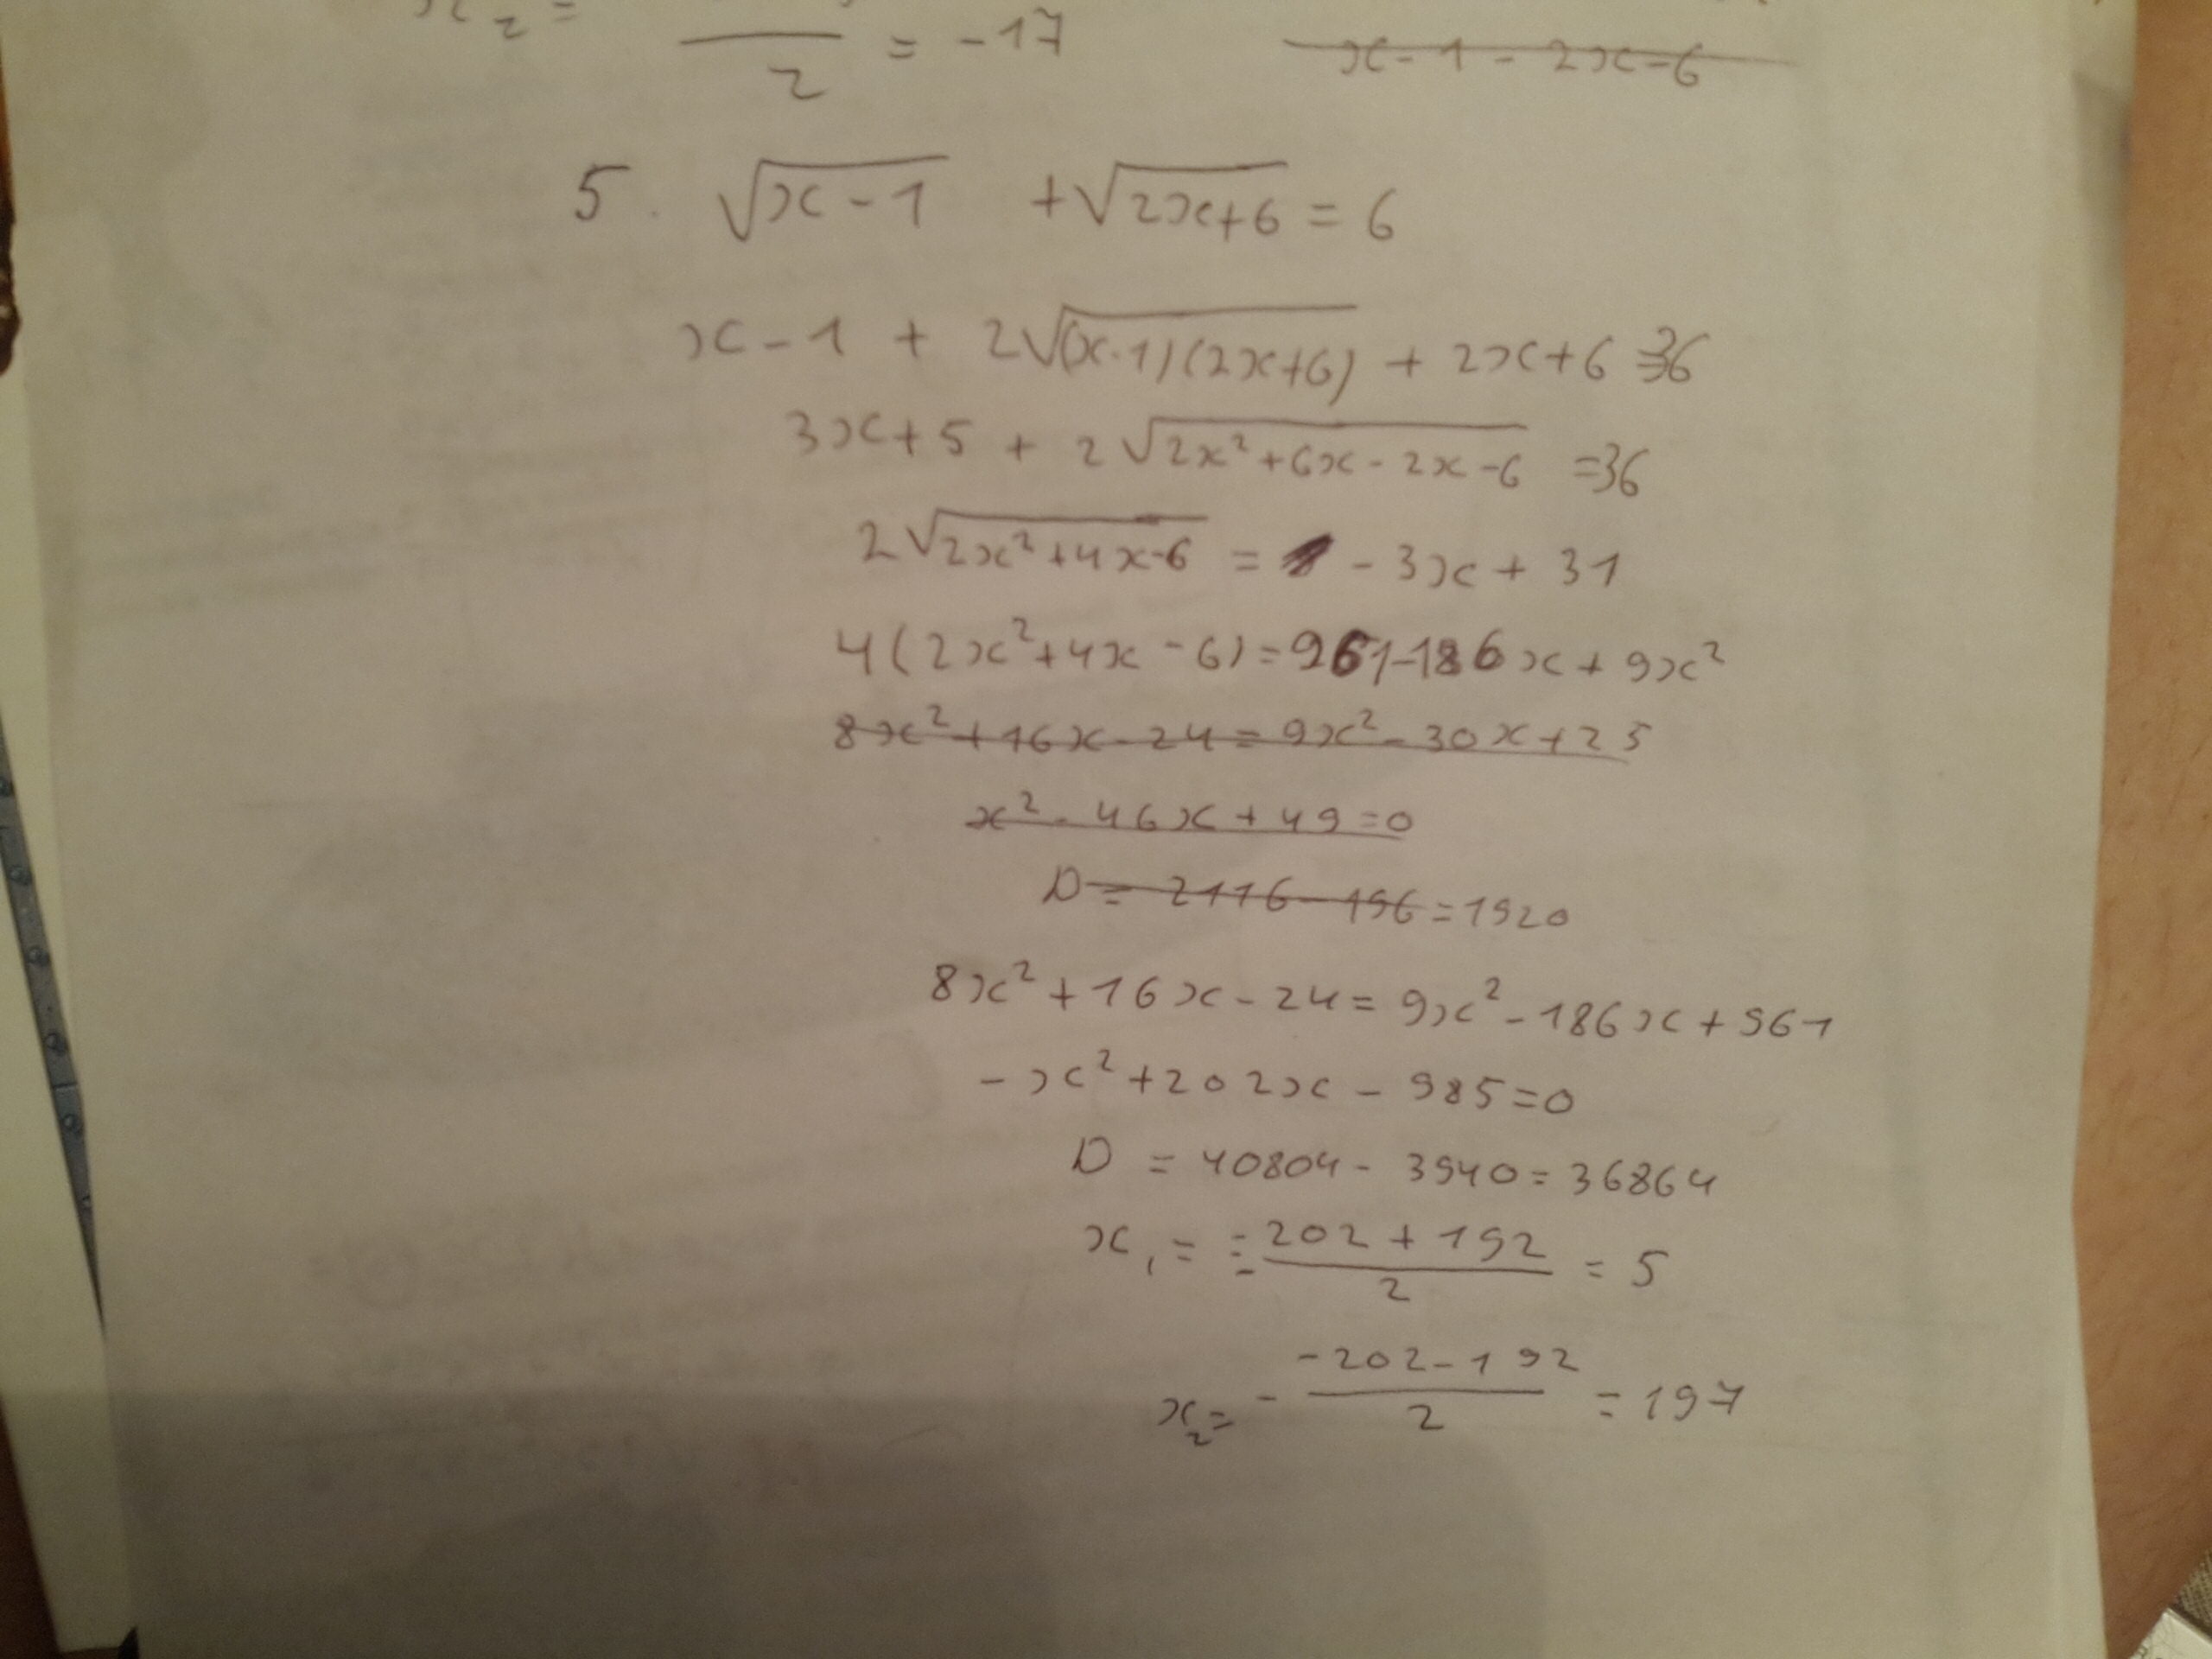 x₂ = ──/2 = -17
x-1-2x-6
5. √(x-1) + √(2x+6) = 6
x-1 + 2√((x-1)(2x+6)) + 2x+6 = 36
3x+5 + 2√(2x²+6x-2x-6) = 36
2√(2x²+4x-6) = -3x+31
4(2x²+4x-6) = 961-186x+9x²
8x²+16x-24 = 9x²-30x+25
x²-46x+49=0
D = 2116-196 = 1920
8x²+16x-24 = 9x²-186x+961
-x²+202x-985=0
D = 40804-3940 = 36864
x₁ = (-202+192)/-2 = 5
x₂ = -(-202-192)/2 = 197